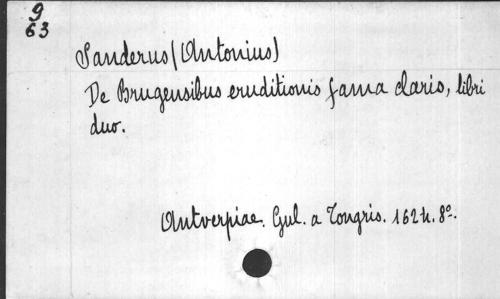 9
63
Sanderus (Antonius)
De Brugensibus eruditionis fama claris, libri
duo.
Antverpiae. Gul. a Tongris. 1624. 8º.